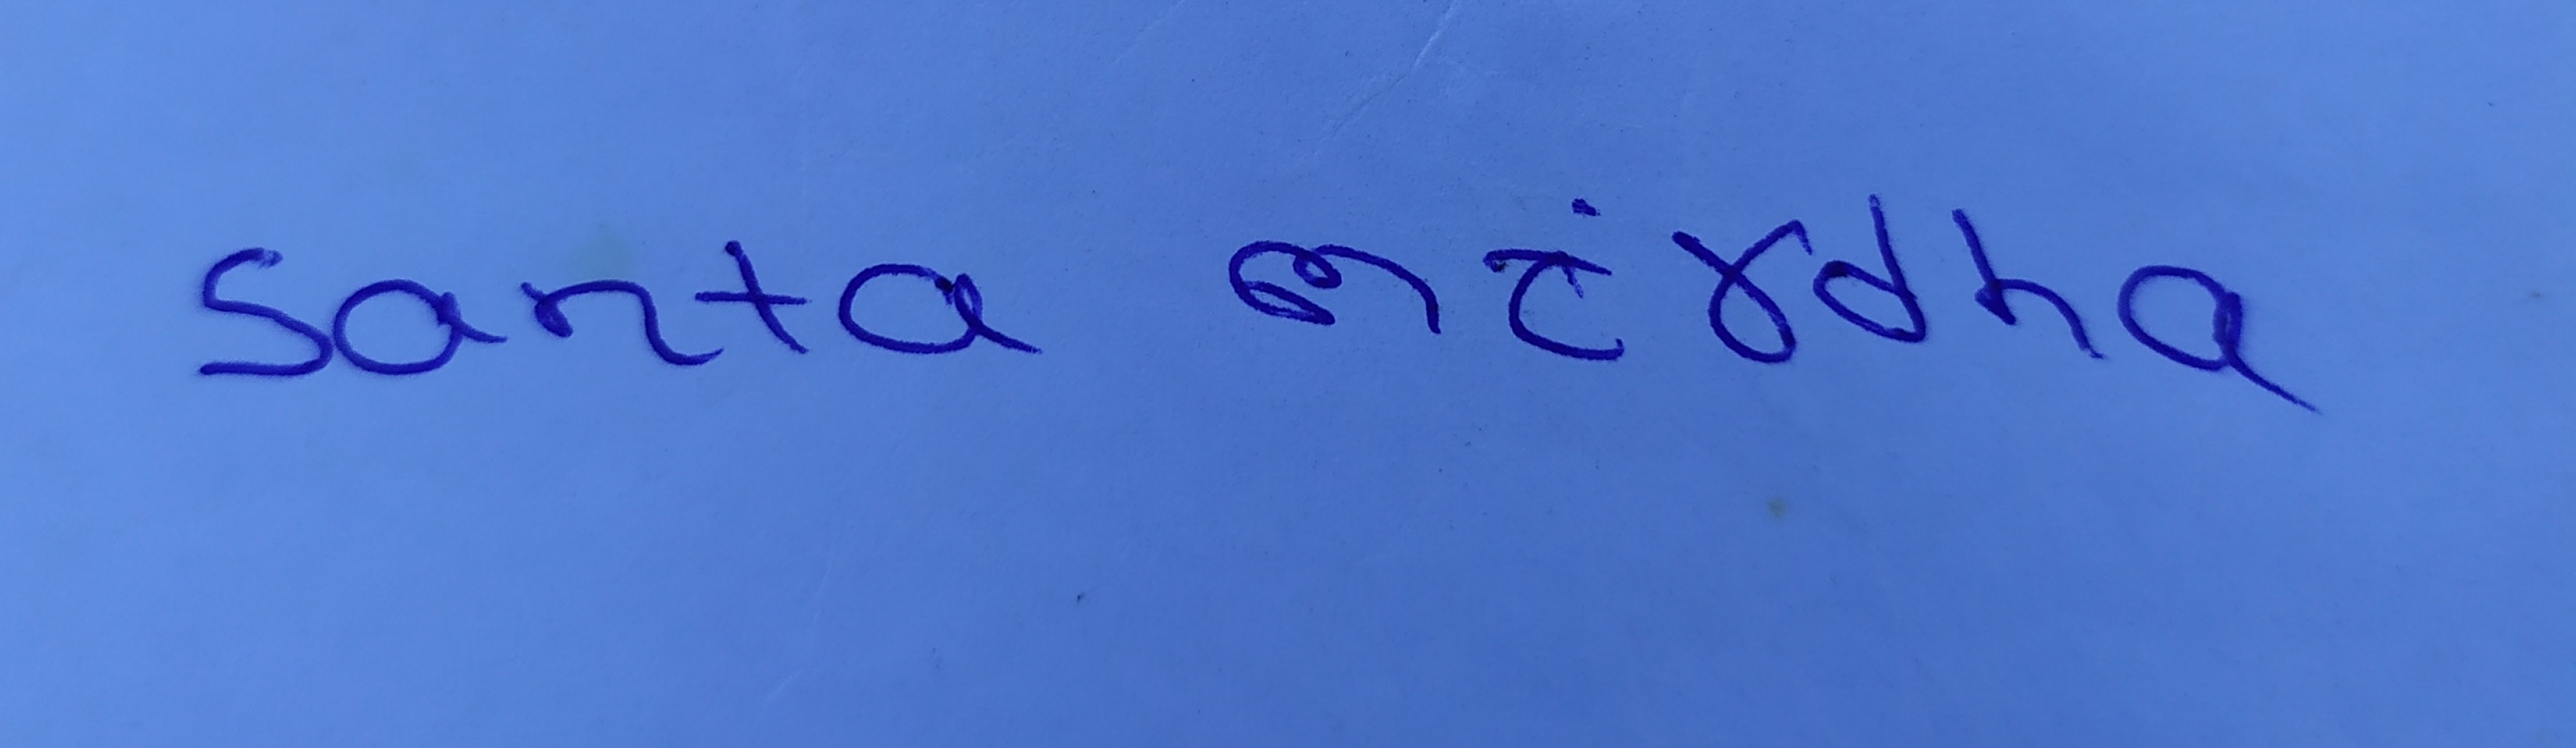 Santa mirdha